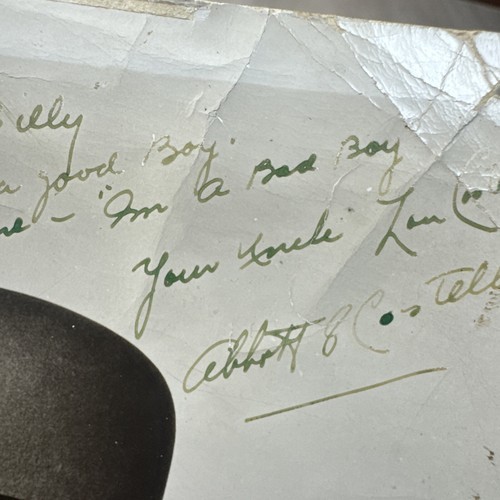 Billy
a good Boy.
me - "Im A Bad Boy
Your Uncle Lou Cos
Abbott & Costell